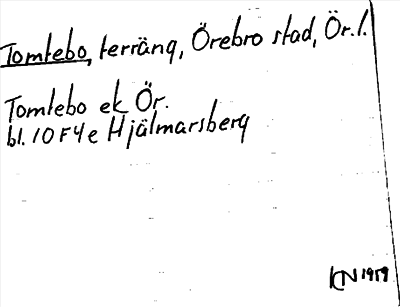 Tomtebo, terräng, Örebro stad, Ör. l.
Tomtebo ek Ör.
bl. 10 F 4 e Hjälmarsberg
KN 1959